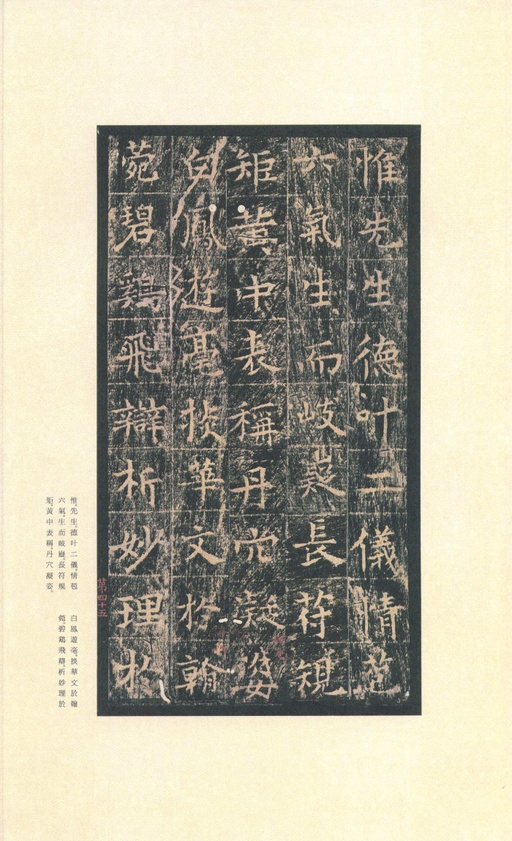 惟先生德叶二儀情苞
六氣生而岐嶷長苻規
矩黃中表稱丹穴凝姿
白鳳遊毫掞華文於翰
菀碧鷄飛辯析妙理於
惟先生德叶二儀情苞
六氣生而岐嶷長符規
矩黃中表稱丹穴凝姿
白鳳遊毫掞華文於翰
菀碧鷄飛辯析妙理於
四十五